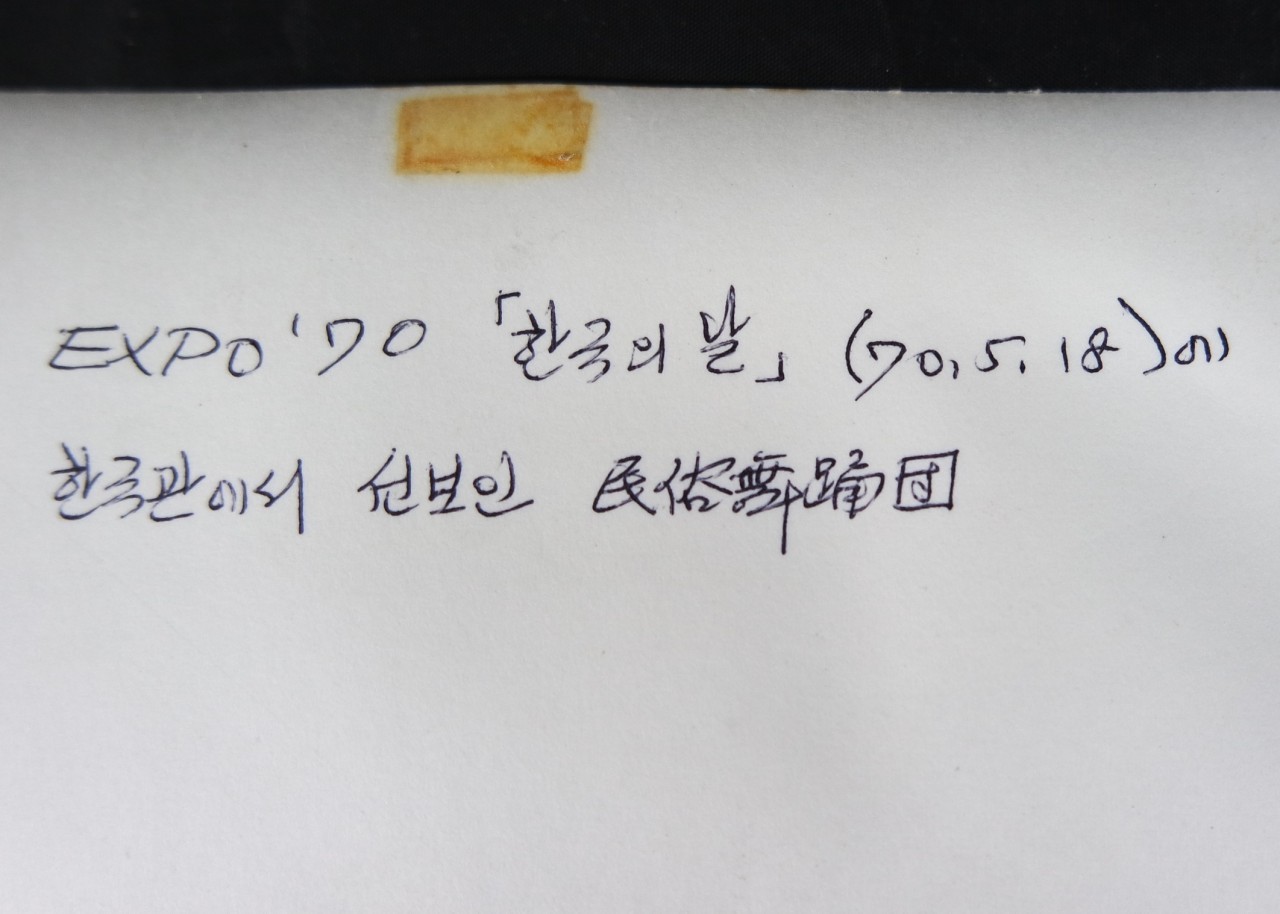 EXPO '70 「한국의 날」 (70. 5. 18)에
한국관에서 선보인 民俗舞踊団